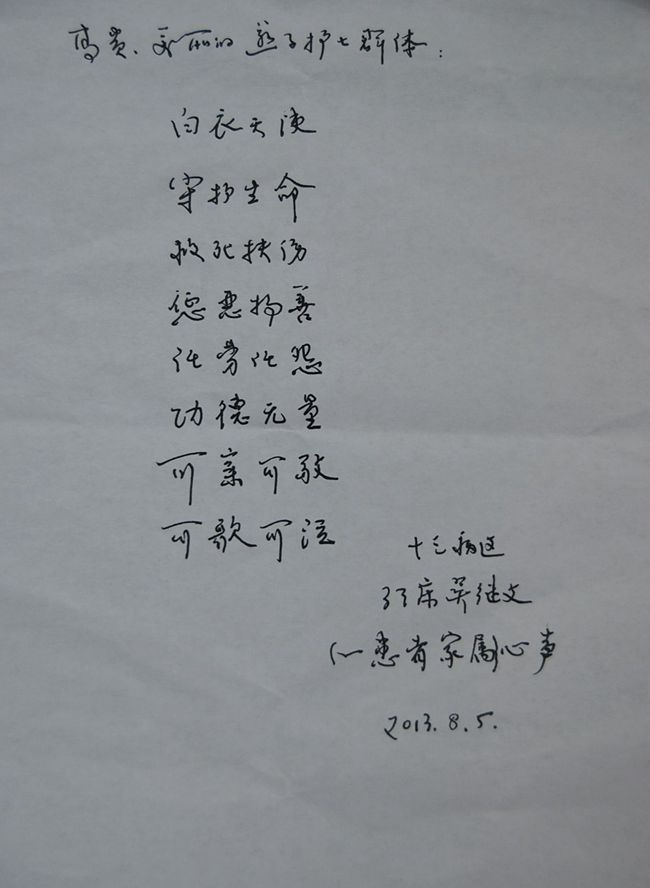 高贵、美丽的护士群体：
白衣天使
守护生命
救死扶伤
惩恶扬善
任劳任怨
功德无量
可亲可敬
可歌可泣
十三病区
床吴继文
患者家属心声
2013.8.5.